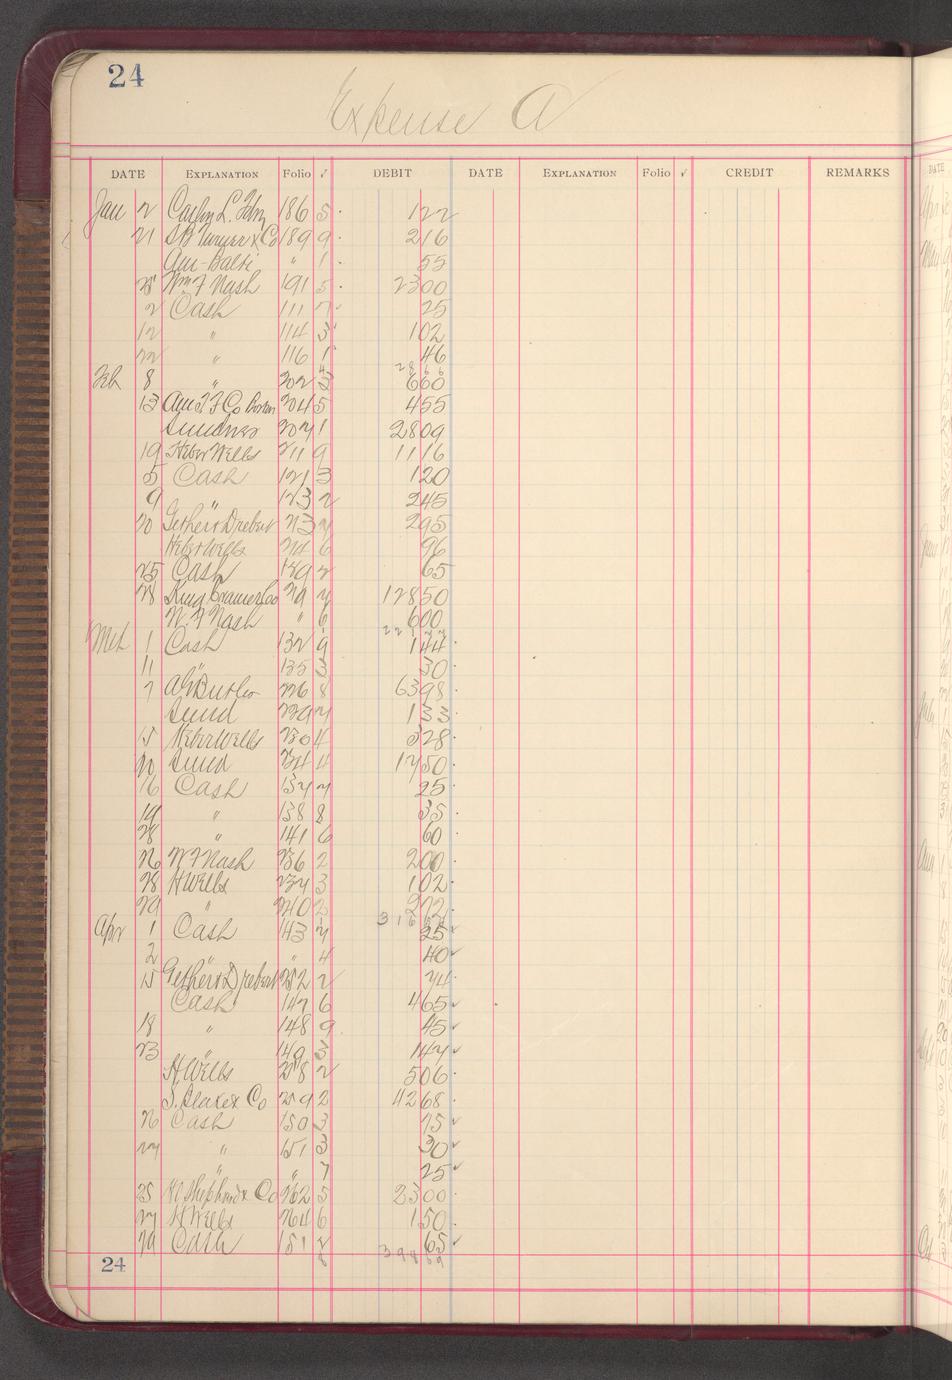 24
Expense A
DATE EXPLANATION Folio ✓ DEBIT DATE EXPLANATION Folio ✓ CREDIT REMARKS
Jan 2 186 5 122
21 S B Turner & Co 189 9 216
Am-Balti " 1 55
28 Wm F Nash 191 5 2300
2 Cash 111 7 25
12 " 114 3 102
22 " 116 1 46
2866
Feb 8 " 202 3 660
13 Am T F Co Boston 204 5 455
Sundries 207 1 2809
19 Heber Wells 211 9 1116
5 Cash 121 3 120
9 " 123 2 245
20 Gether & Drebert 213 7 295
Heber Wells 214 6 96
25 Cash 129 2 65
28 King Cramer Co 219 7 12850
W. F Nash " 6 600
Mch 1 Cash 132 9 144
11 " 135 3 30
7 A G Butler 226 8 6398
Sund 229 7 133
15 Heber Wells 230 4 328
20 Sund 234 4 1750
16 Cash 137 7 25
19 " 138 8 35
28 " 141 6 60
26 W F Nash 236 2 200
28 H Wells 237 3 102
29 " 240 2 272
Apr 1 Cash 143 7 25
2 " " 4 40
15 Gether & Drebert 252 2 74
Cash 147 6 465
18 " 148 9 45
23 " 149 3 147
H. Wells 258 2 506
J. Blake & Co 259 2 4268
26 Cash 150 3 75
27 " 151 3 30
" " 7 25
25 H Shepherd & Co 262 5 2300
27 H Wells 264 6 150
29 Cash 151 2 65
39869
24